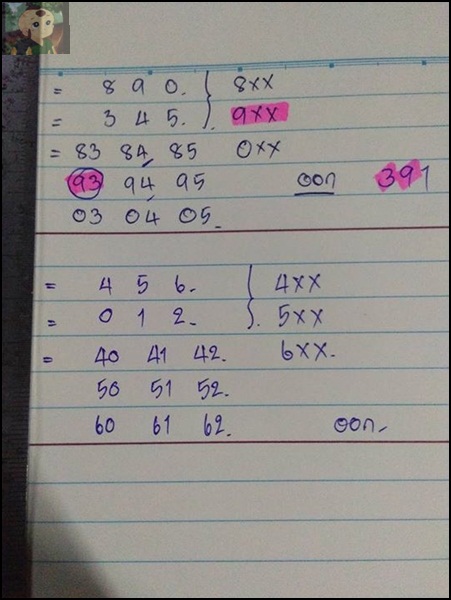 = 8 9 0. } 8xx
= 3 4 5. } 9xx
= 83 84 85 0xx
93 94 95 ออก 391
03 04 05.
= 4 5 6. } 4xx
= 0 1 2. } 5xx
= 40 41 42. 6xx.
50 51 52.
60 61 62. ออก.